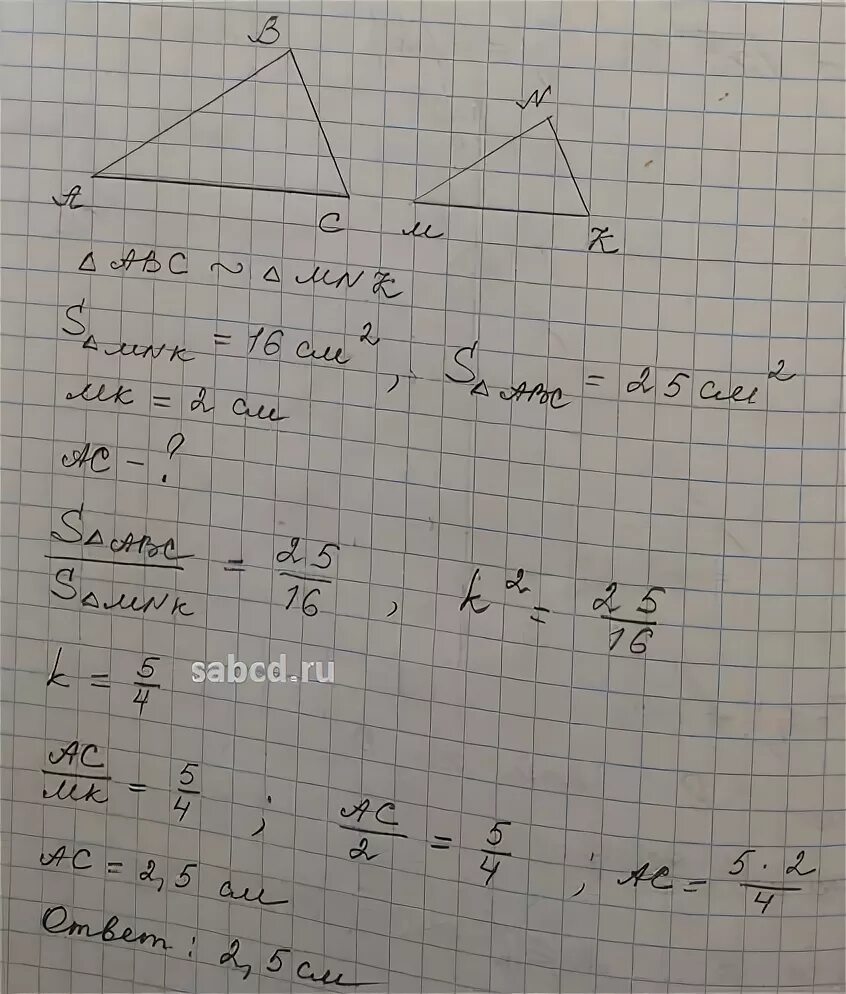 B
N
A
C
M
K
△ABC ~ △MNK
S△MNK = 16 см², S△ABC = 25 см²
MK = 2 см
AC - ?
S△ABC / S△MNK = 25/16, k² = 25/16
k = 5/4
sabcd.ru
AC/MK = 5/4; AC/2 = 5/4; AC = 5·2/4
AC = 2,5 см
Ответ: 2,5 см